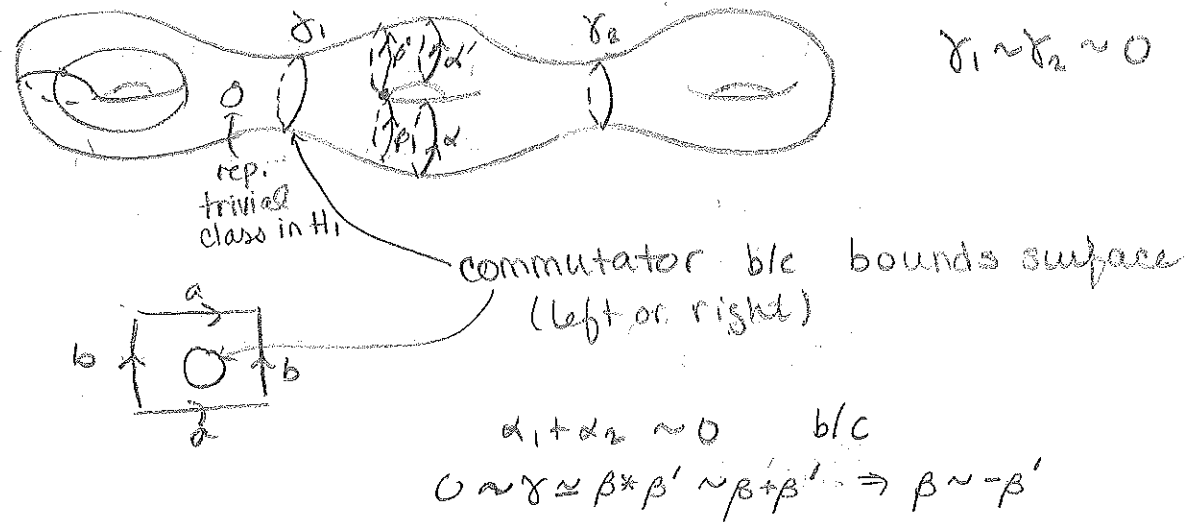 γ₁
γ₂
γ₁ ~ γ₂ ~ 0
β'
α'
β
α
rep.
trivial
class in H₁
commutator b/c bounds surface
(left or right)
a
b
b
a
α₁ + α₂ ~ 0 b/c
0 ~ γ ≃ β * β' ~ β + β' ⇒ β ~ -β'